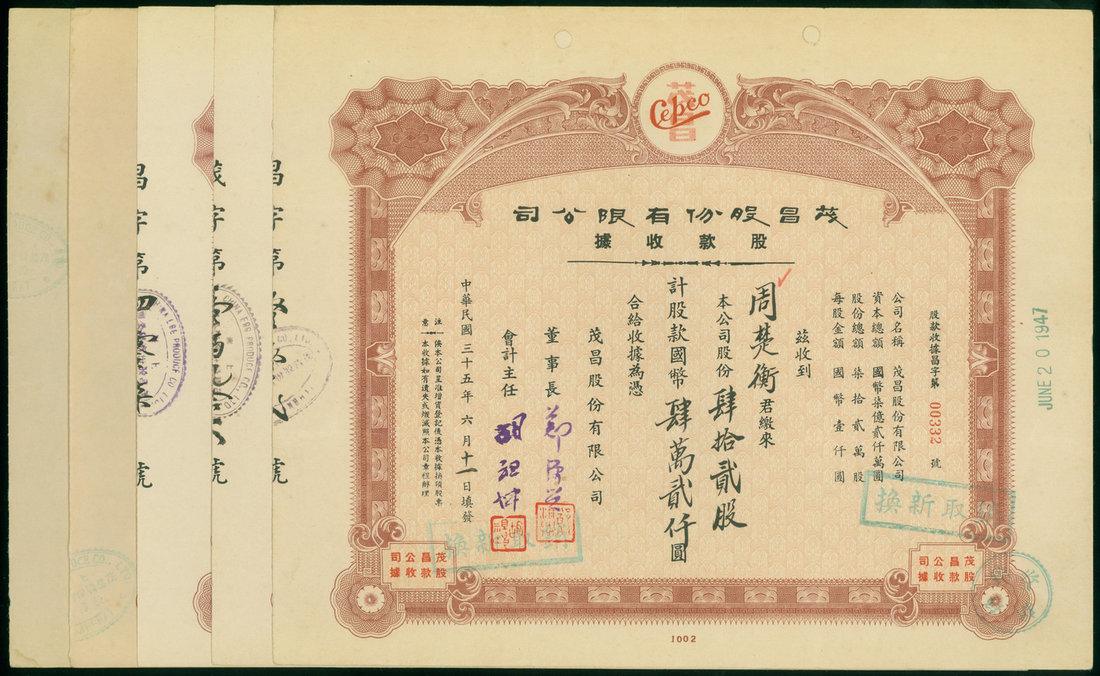 Cepco
茂昌股份有限公司
股款收據
股款收據昌字第 00332 號
公司名稱 茂昌股份有限公司
資本總額 國幣柒億貳仟萬圓
股份總額 柒拾貳萬股
每股金額 國幣壹仟圓
茲收到
周楚衡君繳來
本公司股份肆拾貳股
計股款國幣肆萬貳仟圓
合給收據為憑
茂昌股份有限公司
董事長
會計主任
中華民國三十五年六月十一日填發
注意
俟本公司呈准增資登記後憑本收據換領股票
本收據如有遺失或燬滅照本公司章程辦理
茂昌公司
股款收據
茂昌公司
股款收據
換新取
換新取
JUNE 20 1947
1002
昌字第
號
字第
號
昌字第四
號
CHINA EGG PRODUCE CO